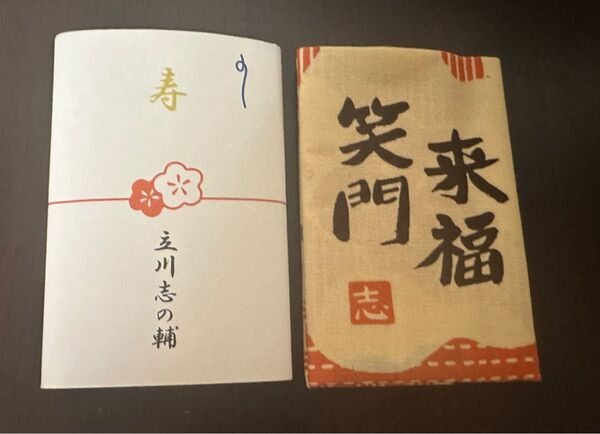 寿
の し
立川志の輔
笑門
来福
志